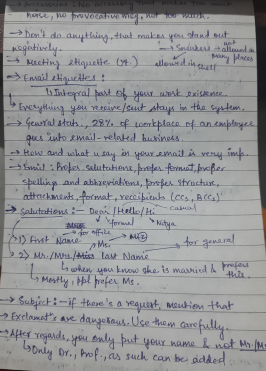 noise, no provocative msg, not too much.
→ Don't do anything, that makes you stand out
negatively.
→ Sneakers not allowed in many places
→ Meeting etiquette (yt) allowed in shell
→ Email etiquettes:
↳ Integral part of your work existence.
↳ Everything you receive/sent stays in the system.
→ General stat., 28% of workplace of an employee
goes into email-related business
→ How and what u say in your email is very imp.
→ Email: Proper salutations, proper format, proper
spelling and abbreviations, proper structure,
attachments, format, reccipients (CCs, BCCs)
→ Salutations: - Dear / Hello / Hi → casual
formal Nitya
for office
→ 1) First Name Ms. for general
→ 2) Mr./Mrs./Miss Last Name
↳ when you know she is married & prefers this.
↳ Mostly, ppl prefer Ms.
→ Subject: - If there's a request, mention that
→ Exclamat's are dangerous. Use them carefully.
→ After regards, you only put your name & not Mr./Ms.
↳ Only Dr., Prof., as such can be added